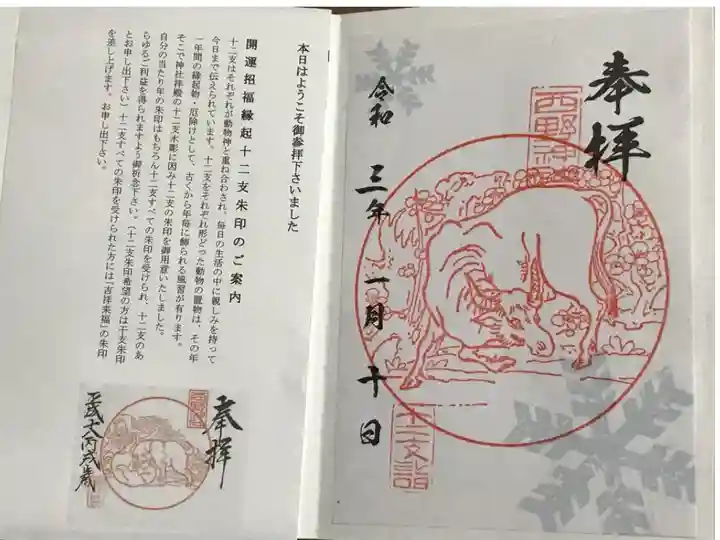 奉拝
西野神
令和 三年 一月 十日
十二支詣
本日はようこそ御参拝下さいました
開運招福縁起十二支朱印のご案内
十二支はそれぞれが動物神と重ね合わされ、毎日の生活の中に親しみを持って
今日まで伝えられています。十二支をそれぞれ形どった動物の置物は、その年
一年間の縁起物・厄除けとして、古くから年毎に飾られる風習が有ります。
そこで神社拝殿の十二支木彫に因み十二支の朱印を御用意いたしました。
自分の当たり年の朱印はもちろん十二支すべての朱印を受けられ、十二支のあ
らゆるご利益を得られますよう御祈念下さい。（十二支朱印希望の方は干支朱印
とお申し出下さい）十二支すべての朱印を受けられた方には「吉祥来福」の朱印
を差し上げます。お申し出下さい。
奉拝